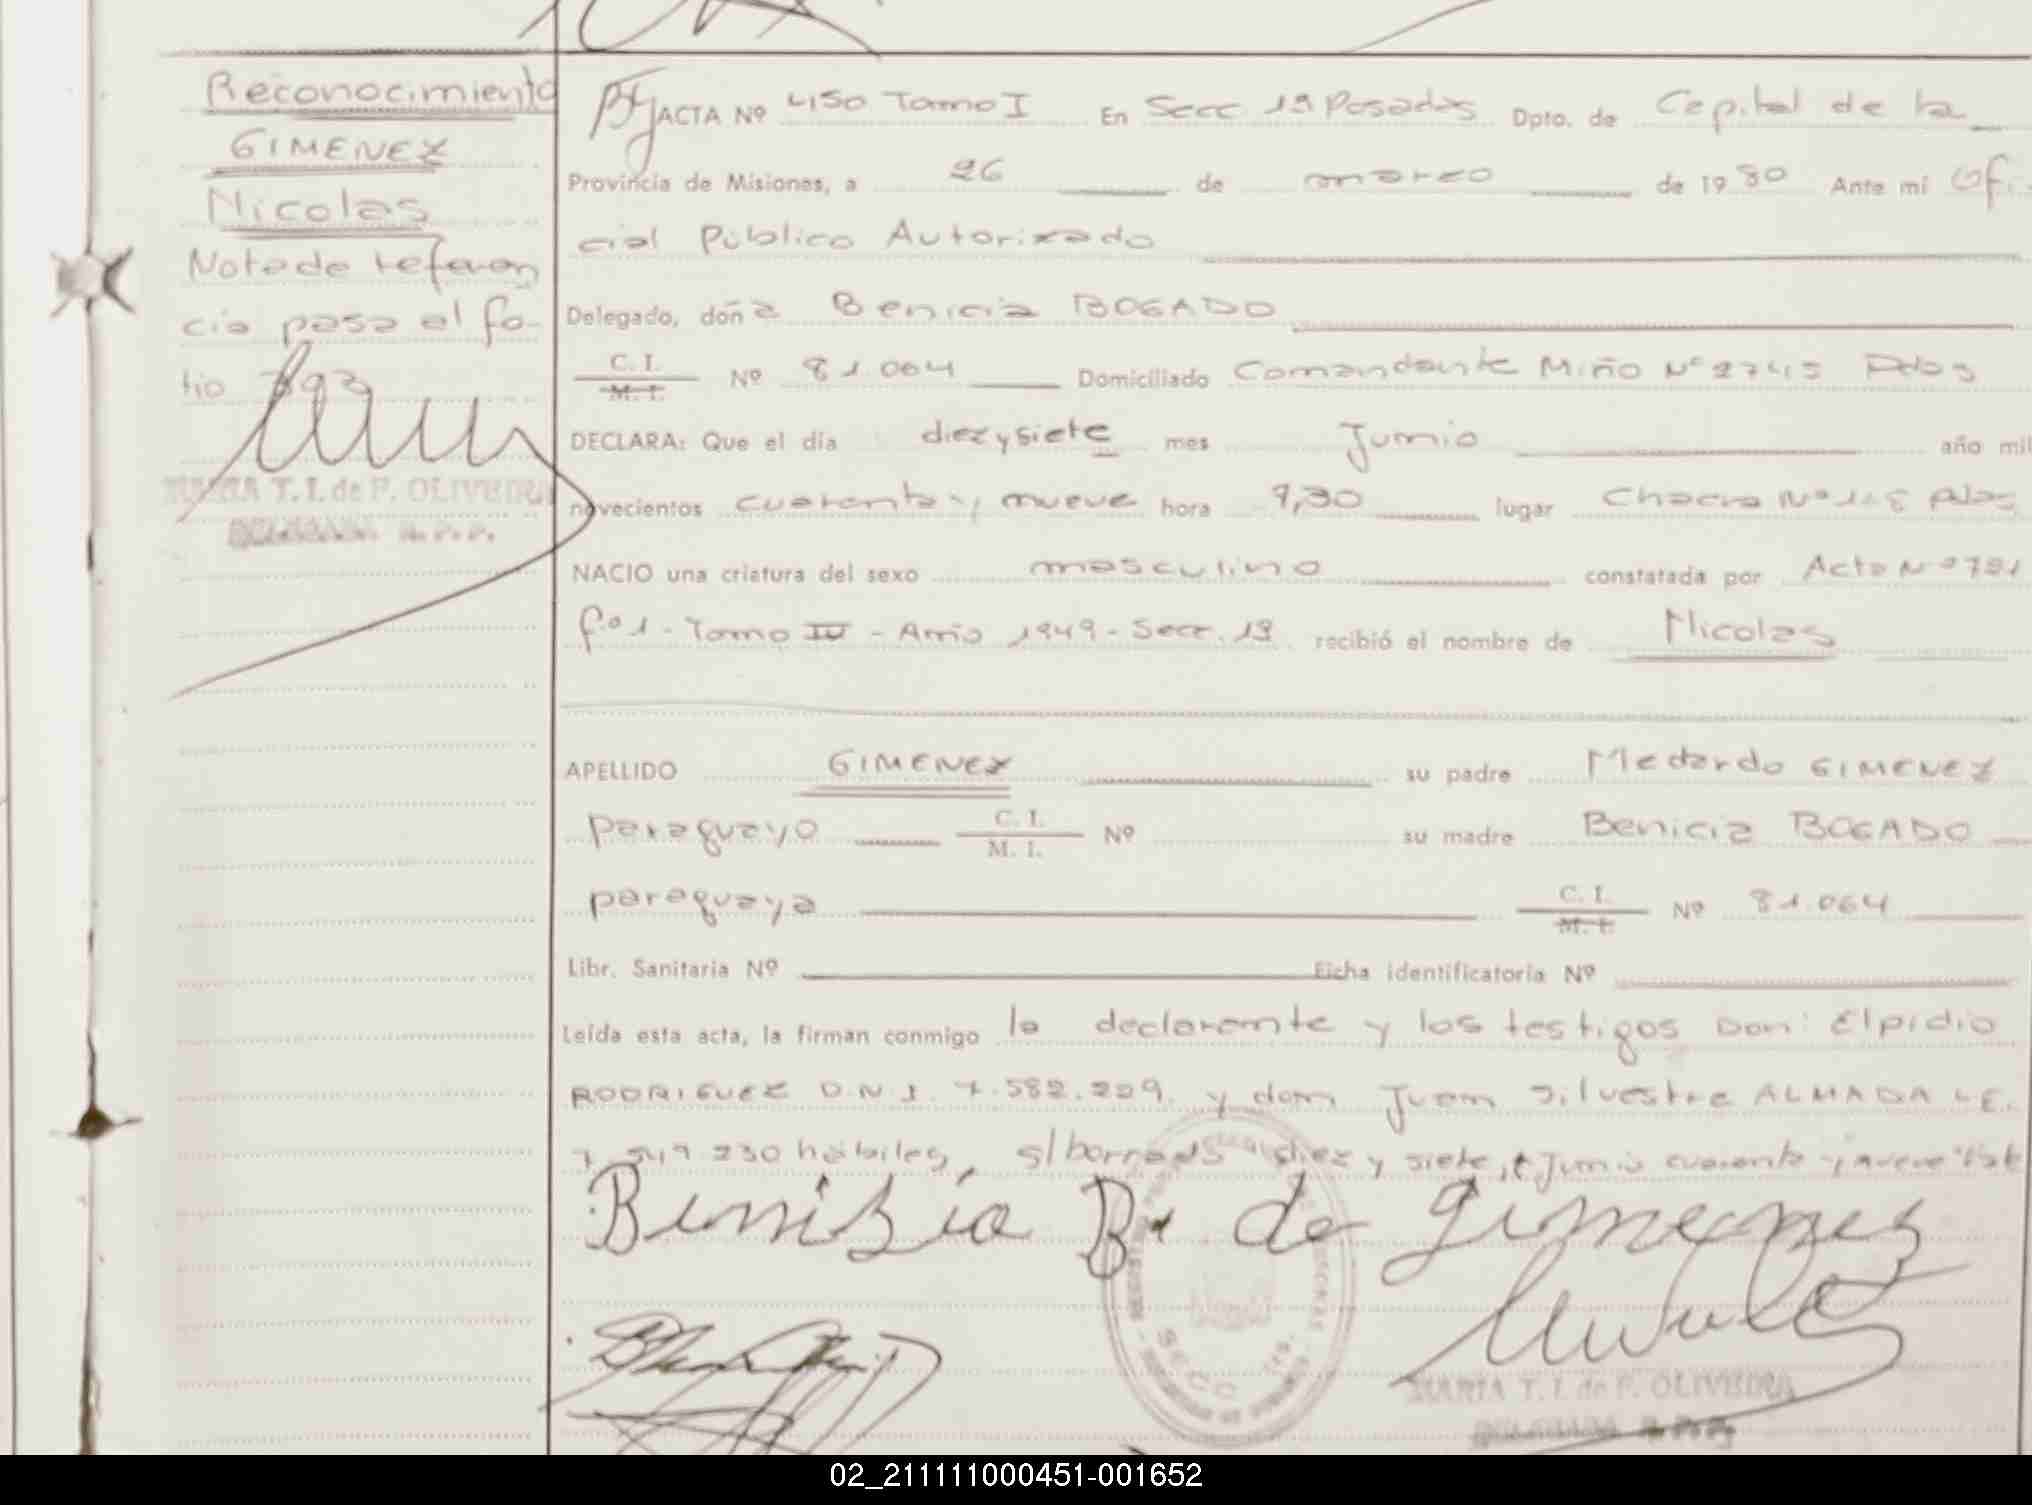 Reconocimiento
GIMENEZ
Nicolas
Nota de referen
cia pasa al fo-
lio 393
MARIA T. I. de F. OLIVEIRA
DELEGADA R. P. P.
ACTA Nº 450 Tomo I En Secc 1ª Posadas Dpto. de Capital de la
Provincia de Misiones, a 26 de marzo de 1980 Ante mi Ofi-
cial Público Autorizado
Delegado, doña Benicia BOGADO
C. I.
M. I. Nº 81.064 Domiciliado Comandante Miño Nº 2745 Pdas
DECLARA: Que el día diez y siete mes Junio año mil
novecientos cuarenta y nueve hora 9,30 lugar Chacra Nº 148 Pdas
NACIO una criatura del sexo masculino constatada por Acta Nº 791
fº 1 - Tomo IV - Año 1949 - Secc. 1ª recibió el nombre de Nicolas
APELLIDO GIMENEZ su padre Medardo GIMENEZ
paraguayo C. I.
M. I. Nº su madre Benicia BOGADO
paraguaya C. I.
M. I. Nº 81.064
Libr. Sanitaria Nº Ficha identificatoria Nº
Leída esta acta, la firman conmigo la declarante y los testigos Don: Elpidio
RODRIGUEZ D.N.I. 7.582.229. y don Juan Silvestre ALMADA L.E.
7.549.230 hábiles, s/borrado "diez y siete, Junio cuarenta y nueve"
Benisia B. de Gimenes
SECC. 1ª
MARIA T. I. de F. OLIVEIRA
DELEGADA R. P. P.
02_211111000451-001652